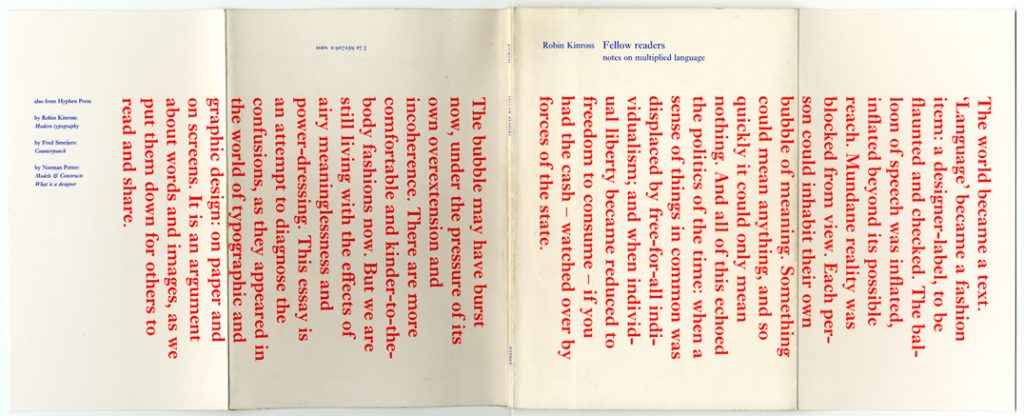 Robin Kinross Fellow readers
notes on multiplied language
The world became a text.
‘Language’ became a fashion
item: a designer-label, to be
flaunted and checked. The bal-
loon of speech was inflated,
inflated beyond its possible
reach. Mundane reality was
blocked from view. Each per-
son could inhabit their own
bubble of meaning. Something
could mean anything, and so
quickly it could only mean
nothing. And all of this echoed
the politics of the time: when a
sense of things in common was
displaced by free-for-all indi-
vidualism; and when individ-
ual liberty became reduced to
freedom to consume – if you
had the cash – watched over by
forces of the state.
KINROSS
FELLOW READERS
HYPHEN
ISBN 0 907259 07 3
The bubble may have burst
now, under the pressure of its
own overextension and
incoherence. There are more
comfortable and kinder-to-the-
body fashions now. But we are
still living with the effects of
airy meaninglessness and
power-dressing. This essay is
an attempt to diagnose the
confusions, as they appeared in
the world of typographic and
graphic design: on paper and
on screens. It is an argument
about words and images, as we
put them down for others to
read and share.
also from Hyphen Press
by Robin Kinross:
Modern typography
by Fred Smeijers:
Counterpunch
by Norman Potter:
Models & Constructs
What is a designer